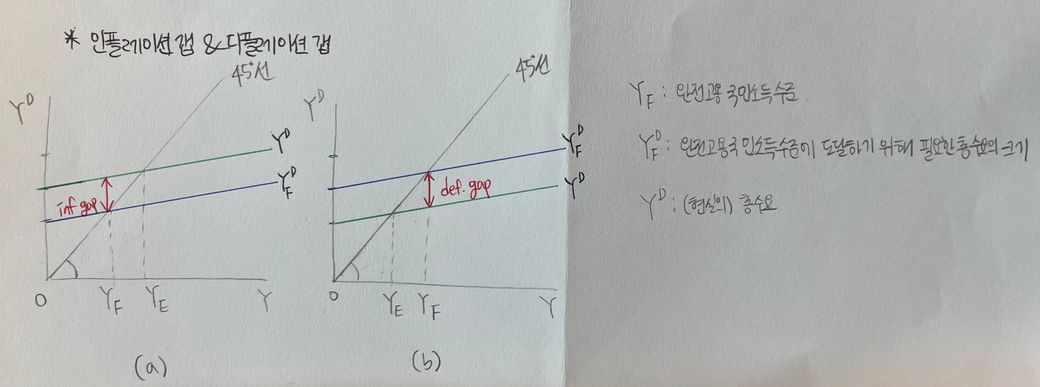 * 인플레이션 갭 & 디플레이션 갭
Y^D
45°선
Y^D
Y_F^D
inf gap
O
Y_F
Y_E
Y
(a)
Y^D
45°선
Y_F^D
Y^D
def. gap
O
Y_E
Y_F
Y
(b)
Y_F : 완전고용 국민소득수준
Y_F^D : 완전고용국민소득수준에 도달하기 위해 필요한 총수요의 크기
Y^D : (현실의) 총수요